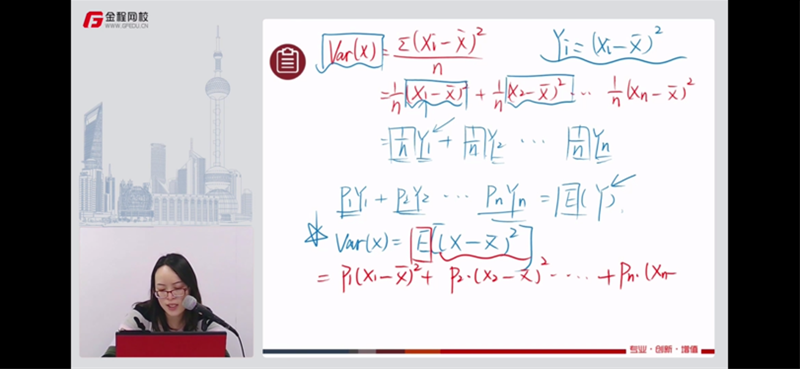 金程网校
WWW.GFEDU.CN
Var(x) = Σ(Xi-x̄)²/n   Yi = (Xi-x̄)²
= 1/n (X1-x̄)² + 1/n (X2-x̄)² ... 1/n (Xn-x̄)²
= 1/n Y1 + 1/n Y2 ... 1/n Yn
P1Y1 + P2Y2 ... PnYn = E(Y).
Var(x) = E[(X-x̄)²]
= P1(X1-x̄)² + P2·(X2-x̄)² ······ + Pn·(Xn-
专业·创新·增值